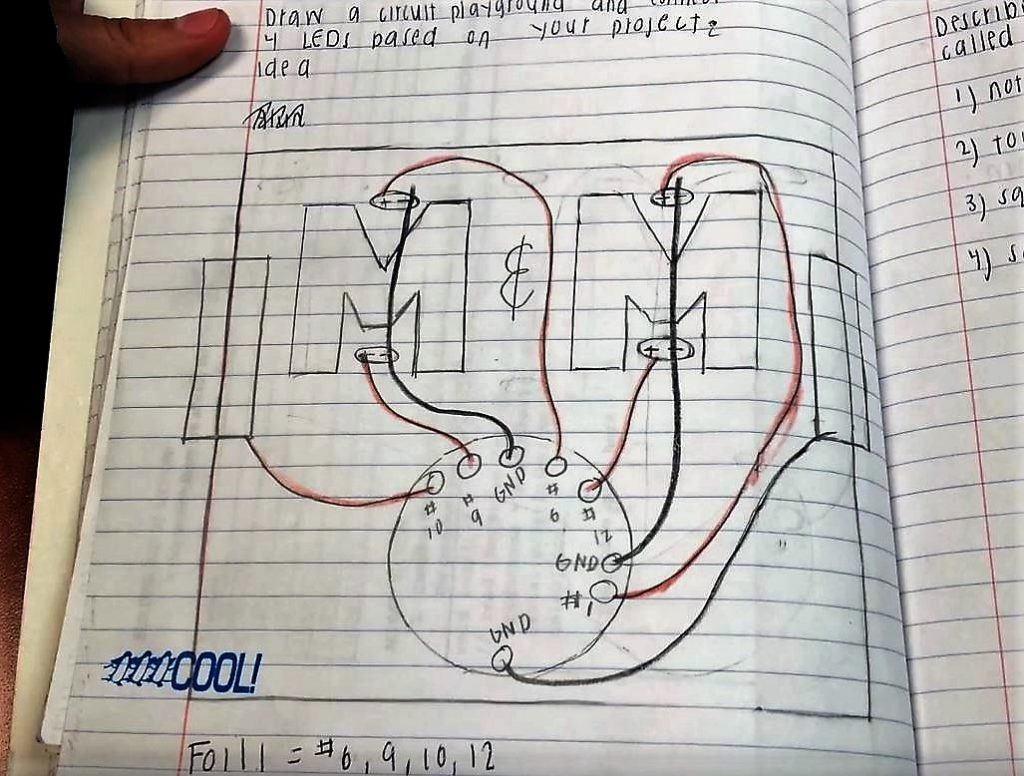 Draw a circuit playground and
4 LEDs based on your project
idea
Describ
called
1) not
2) to
3) sq
4) s
&
+ -
+ -
+ -
+ -
# 10
# 9
GND
# 6
# 12
GND
# 1
GND
COOL!
Foil = # 6, 9, 10, 12